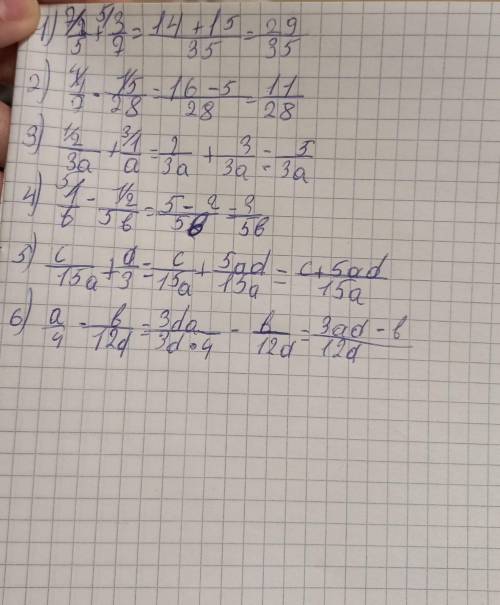 1) ⁷⁄2/5 + ⁵⁄3/7 = 14 + 15/35 = 29/35
2) ⁴⁄4/7 - ¹⁄5/28 = 16 - 5/28 = 11/28
3) ¹⁄2/3a + ³⁄1/a = 2/3a + 3/3a = 5/3a
4) ⁵⁄1/b - ¹⁄2/5b = 5 - 2/5b = 3/5b
5) c/15a + d/3 = c/15a + 5ad/15a = c + 5ad/15a
6) a/4 - b/12d = 3da/3d•4 - b/12d = 3ad - b/12d